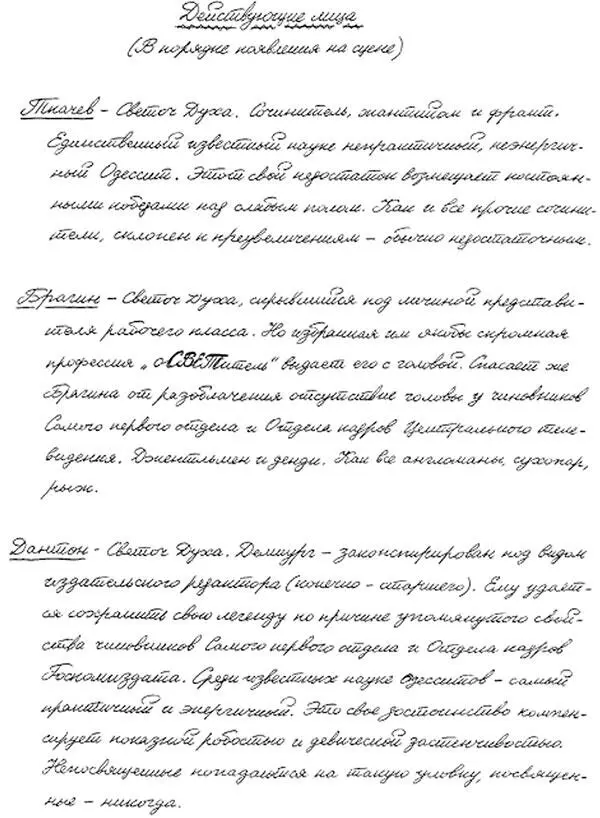 Действующие лица
(В порядке появления на сцене)
Ткачев – Светоч Духа. Сочинитель, жантийом и франт.
Единственный известный науке непрактичный, неэнергич-
ный Одессит. Этот свой недостаток возмещает постоян-
ными победами над слабым полом. Как и все прочие сочини-
тели, склонен к преувеличениям – обычно недостаточным.
Брагин – Светоч Духа, скрывшийся под личиной представи-
теля рабочего класса. Но избранная им якобы скромная
профессия „оСВЕТитель“ выдает его с головой. Спасает же
Брагина от разоблачения отсутствие головы у чиновников
Самого первого отдела и Отдела кадров Центрального теле-
видения. Джентльмен и денди. Как все англоманы, сухопар,
рыж.
Дантон – Светоч Духа. Демиург – законспирирован под видом
издательского редактора (конечно – старшего). Ему удает-
ся сохранить свою легенду по причине упомянутого свой-
ства чиновников Самого первого отдела и Отдела кадров
Госкомиздата. Среди известных науке одесситов – самый
практичный и энергичный. Это свое достоинство компен-
сирует показной робостью и девической застенчивостью.
Непосвященные попадаются на такую уловку, посвящен-
ные – никогда.